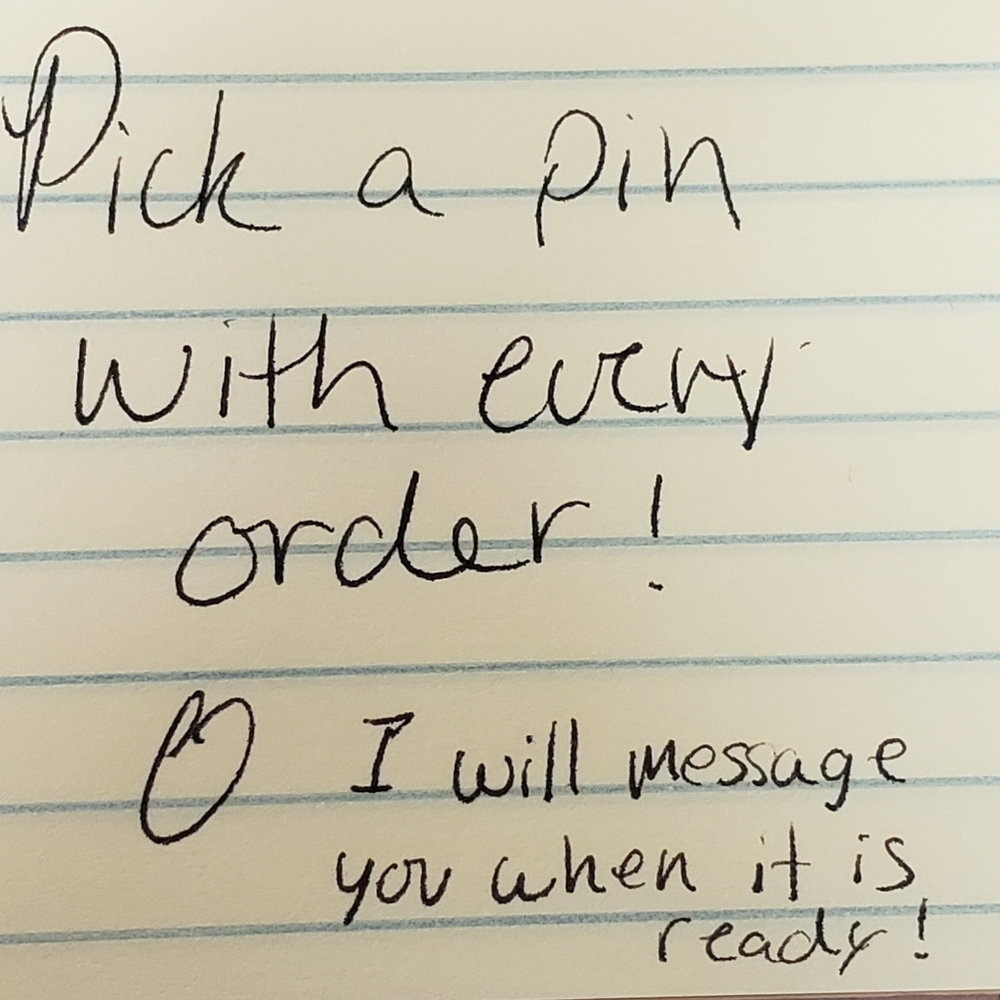 Pick a pin
with every
order!
I will message
you when it is
ready!